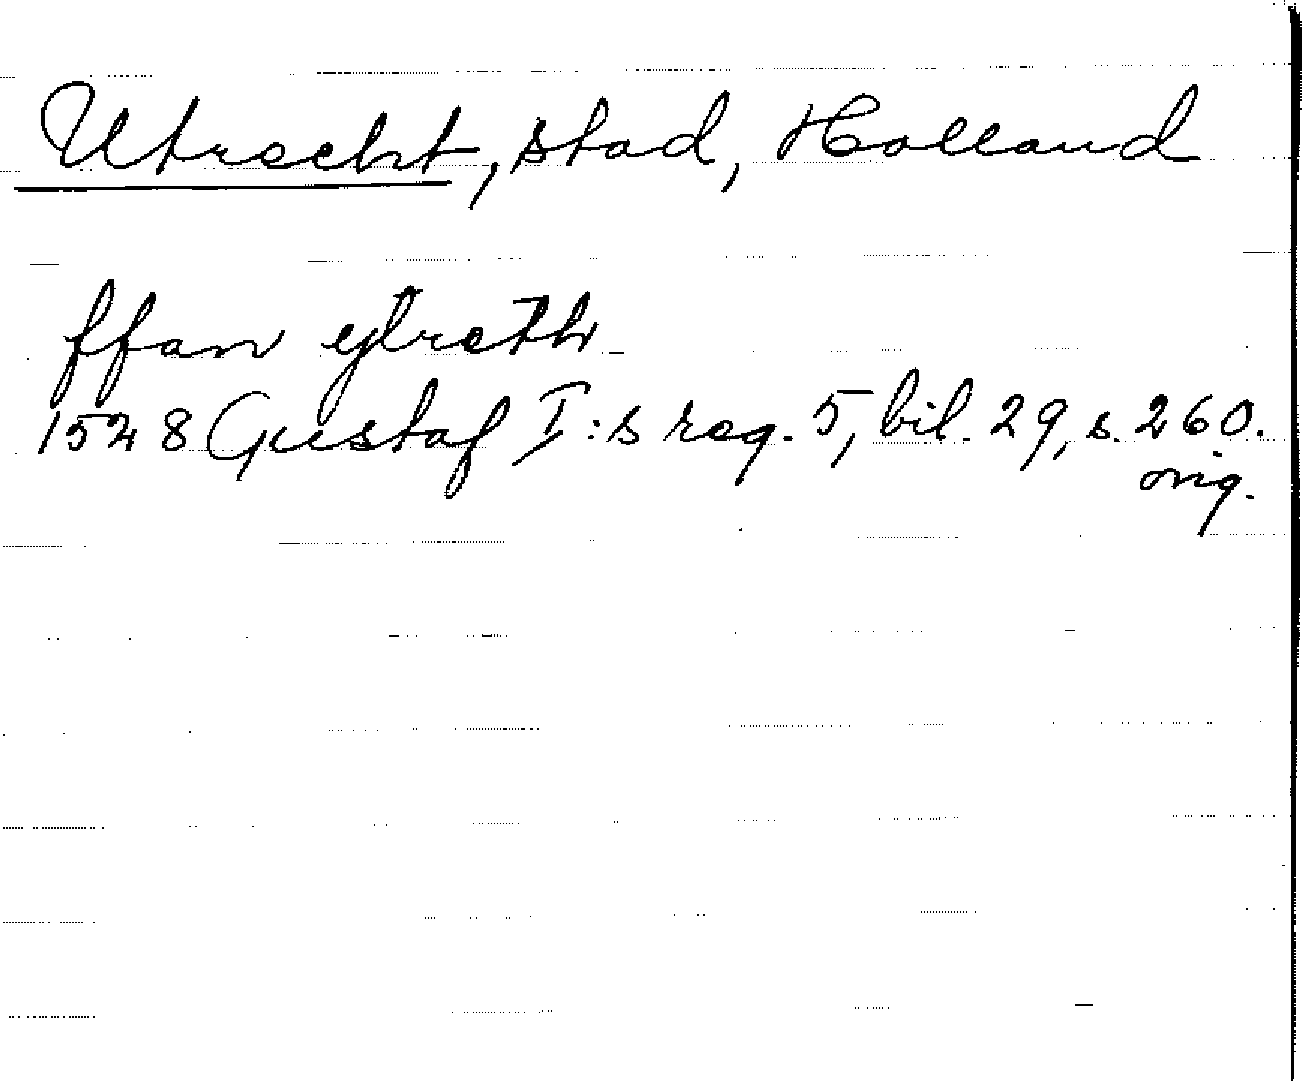 Utrecht, stad, Holland
ffan ytreth
1528 Gustaf I:s reg. 5, bil. 29, s. 260.
orig.